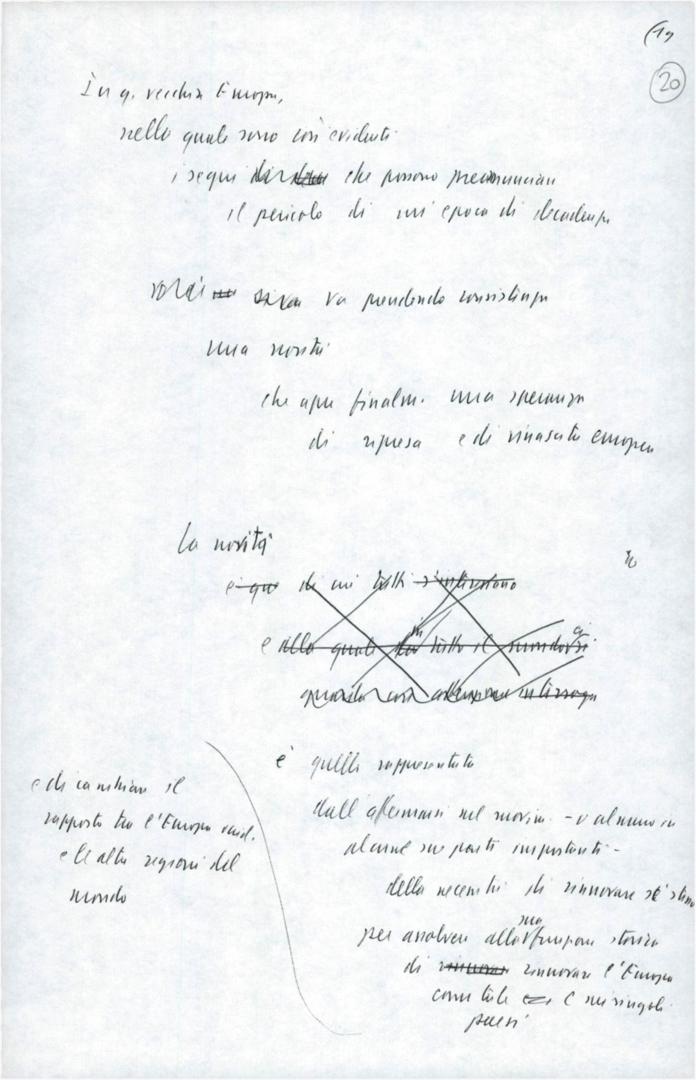 (19
20
In q. vecchia Europa,
nella quale sono così evidenti
i segni che possono preannunciare
il pericolo di un'epoca di decadenza
va prendendo consistenza
una novità
che apre finalm. una speranza
di ripresa e di rinascita europea
La novità
è que di cui tutti
e alla quale tutto il mondo si
guarda con interroga
è quella rappresentata
dall'affermarsi nel movim. - o almeno in
alcune sue parti importanti -
della necessità di rinnovare sé stesso
per assolvere alla sua funzione storica
di rinnovare l'Europa
come tale e nei singoli
paesi
e di cambiare il
rapporto tra l'Europa occid.
e le altre regioni del
mondo